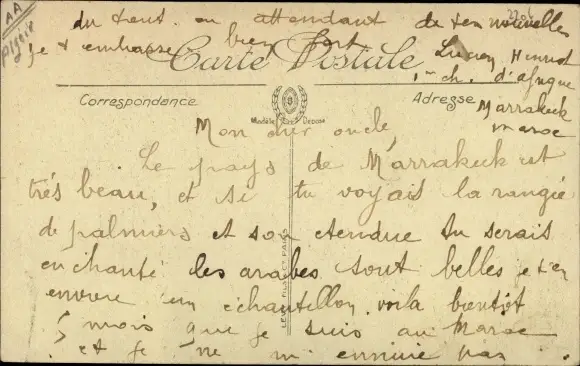 du tout en attendant de tes nouvelles
je t'embrasse bien fort
Carte Postale
Lucien
1er ch. d'afrique
Marrakech
Maroc
AA
Algérie
Correspondance
Adresse
Modèle Déposé
Mon cher oncle,
Le pays de Marrakech est
très beau, et si tu voyais la rangée
de palmiers et son etendue tu serais
enchanté les arabes sont belles je t'en
envoie un échantillon. voila bientôt
5 mois que je suis au Maroc
et je ne m'ennuie pas
FILS ET PARIS